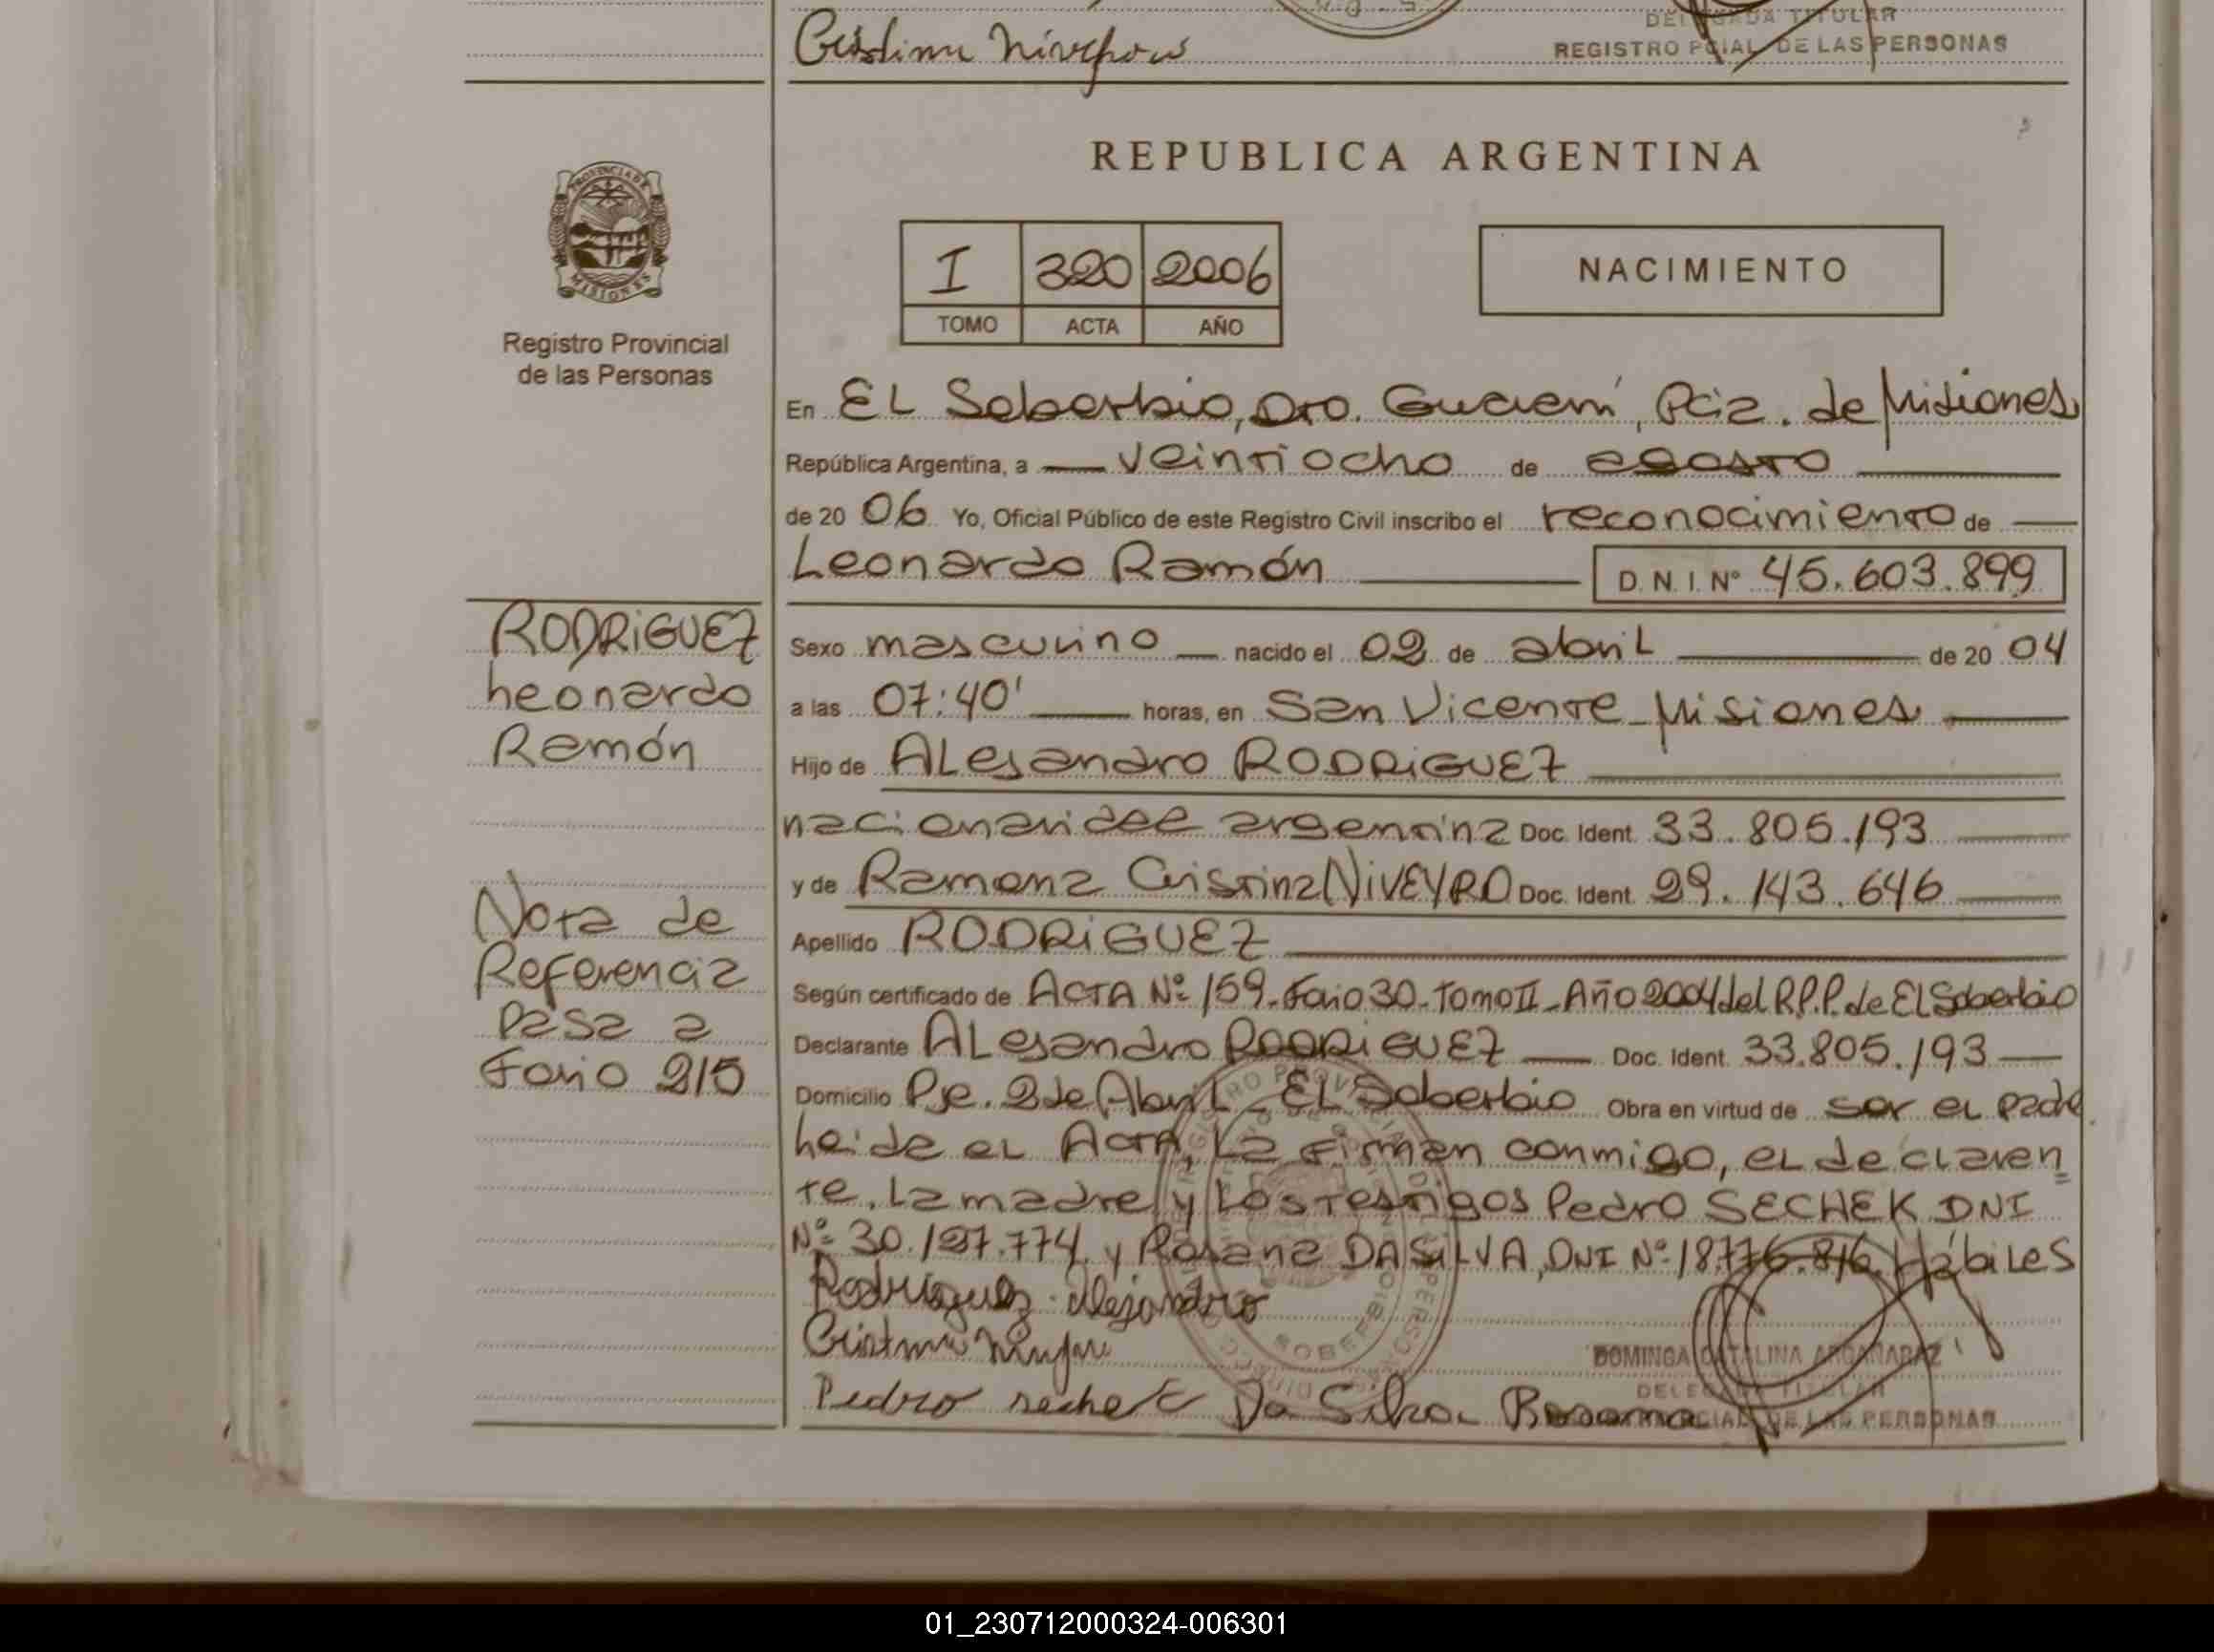 Cristina
DELEGADA TITULAR
REGISTRO PCIAL DE LAS PERSONAS
PROVINCIA DE
MISIONES
Registro Provincial
de las Personas
REPUBLICA ARGENTINA
I 320 2006
TOMO ACTA AÑO
NACIMIENTO
En EL Soberbio, Dto. Guaraní, Pcia. de Misiones
República Argentina, a veintiocho de agosto
de 20 06 Yo, Oficial Público de este Registro Civil inscribo el reconocimiento de
Leonardo Ramón D. N. I. Nº 45.603.899
RODRIGUEZ
Leonardo
Ramón
Nota de
Referencia
Pasa a
Folio 215
Sexo masculino nacido el 02 de abril de 20 04
a las 07:40' horas, en San Vicente - Misiones
Hijo de ALejandro RODRIGUEZ
nacionalidad argentina Doc. Ident. 33.805.193
y de Ramona Cristina NIVEYRO Doc. Ident. 29.143.646
Apellido RODRIGUEZ
Según certificado de ACTA Nº 159- Folio 30-Tomo II-Año 2004 del R.P.P. de EL Soberbio
Declarante ALejandro RODRIGUEZ Doc. Ident. 33.805.193
Domicilio Pje. 2 de Abril - EL Soberbio Obra en virtud de ser el padre
Leida el ACTA, La firman conmigo, el declaran
te, La madre y Los testigos Pedro SECHEK DNI
Nº 30.127.774 y Rosana DA SILVA, DNI Nº 18.776.816 Hábiles
Rodriguez Alejandro
Cristina
Pedro sechek Da Silva Rosana
DOMINGA CATALINA ARGAÑARAZ
DELEGADA TITULAR
PCIAL DE LAS PERSONAS
01_230712000324-006301